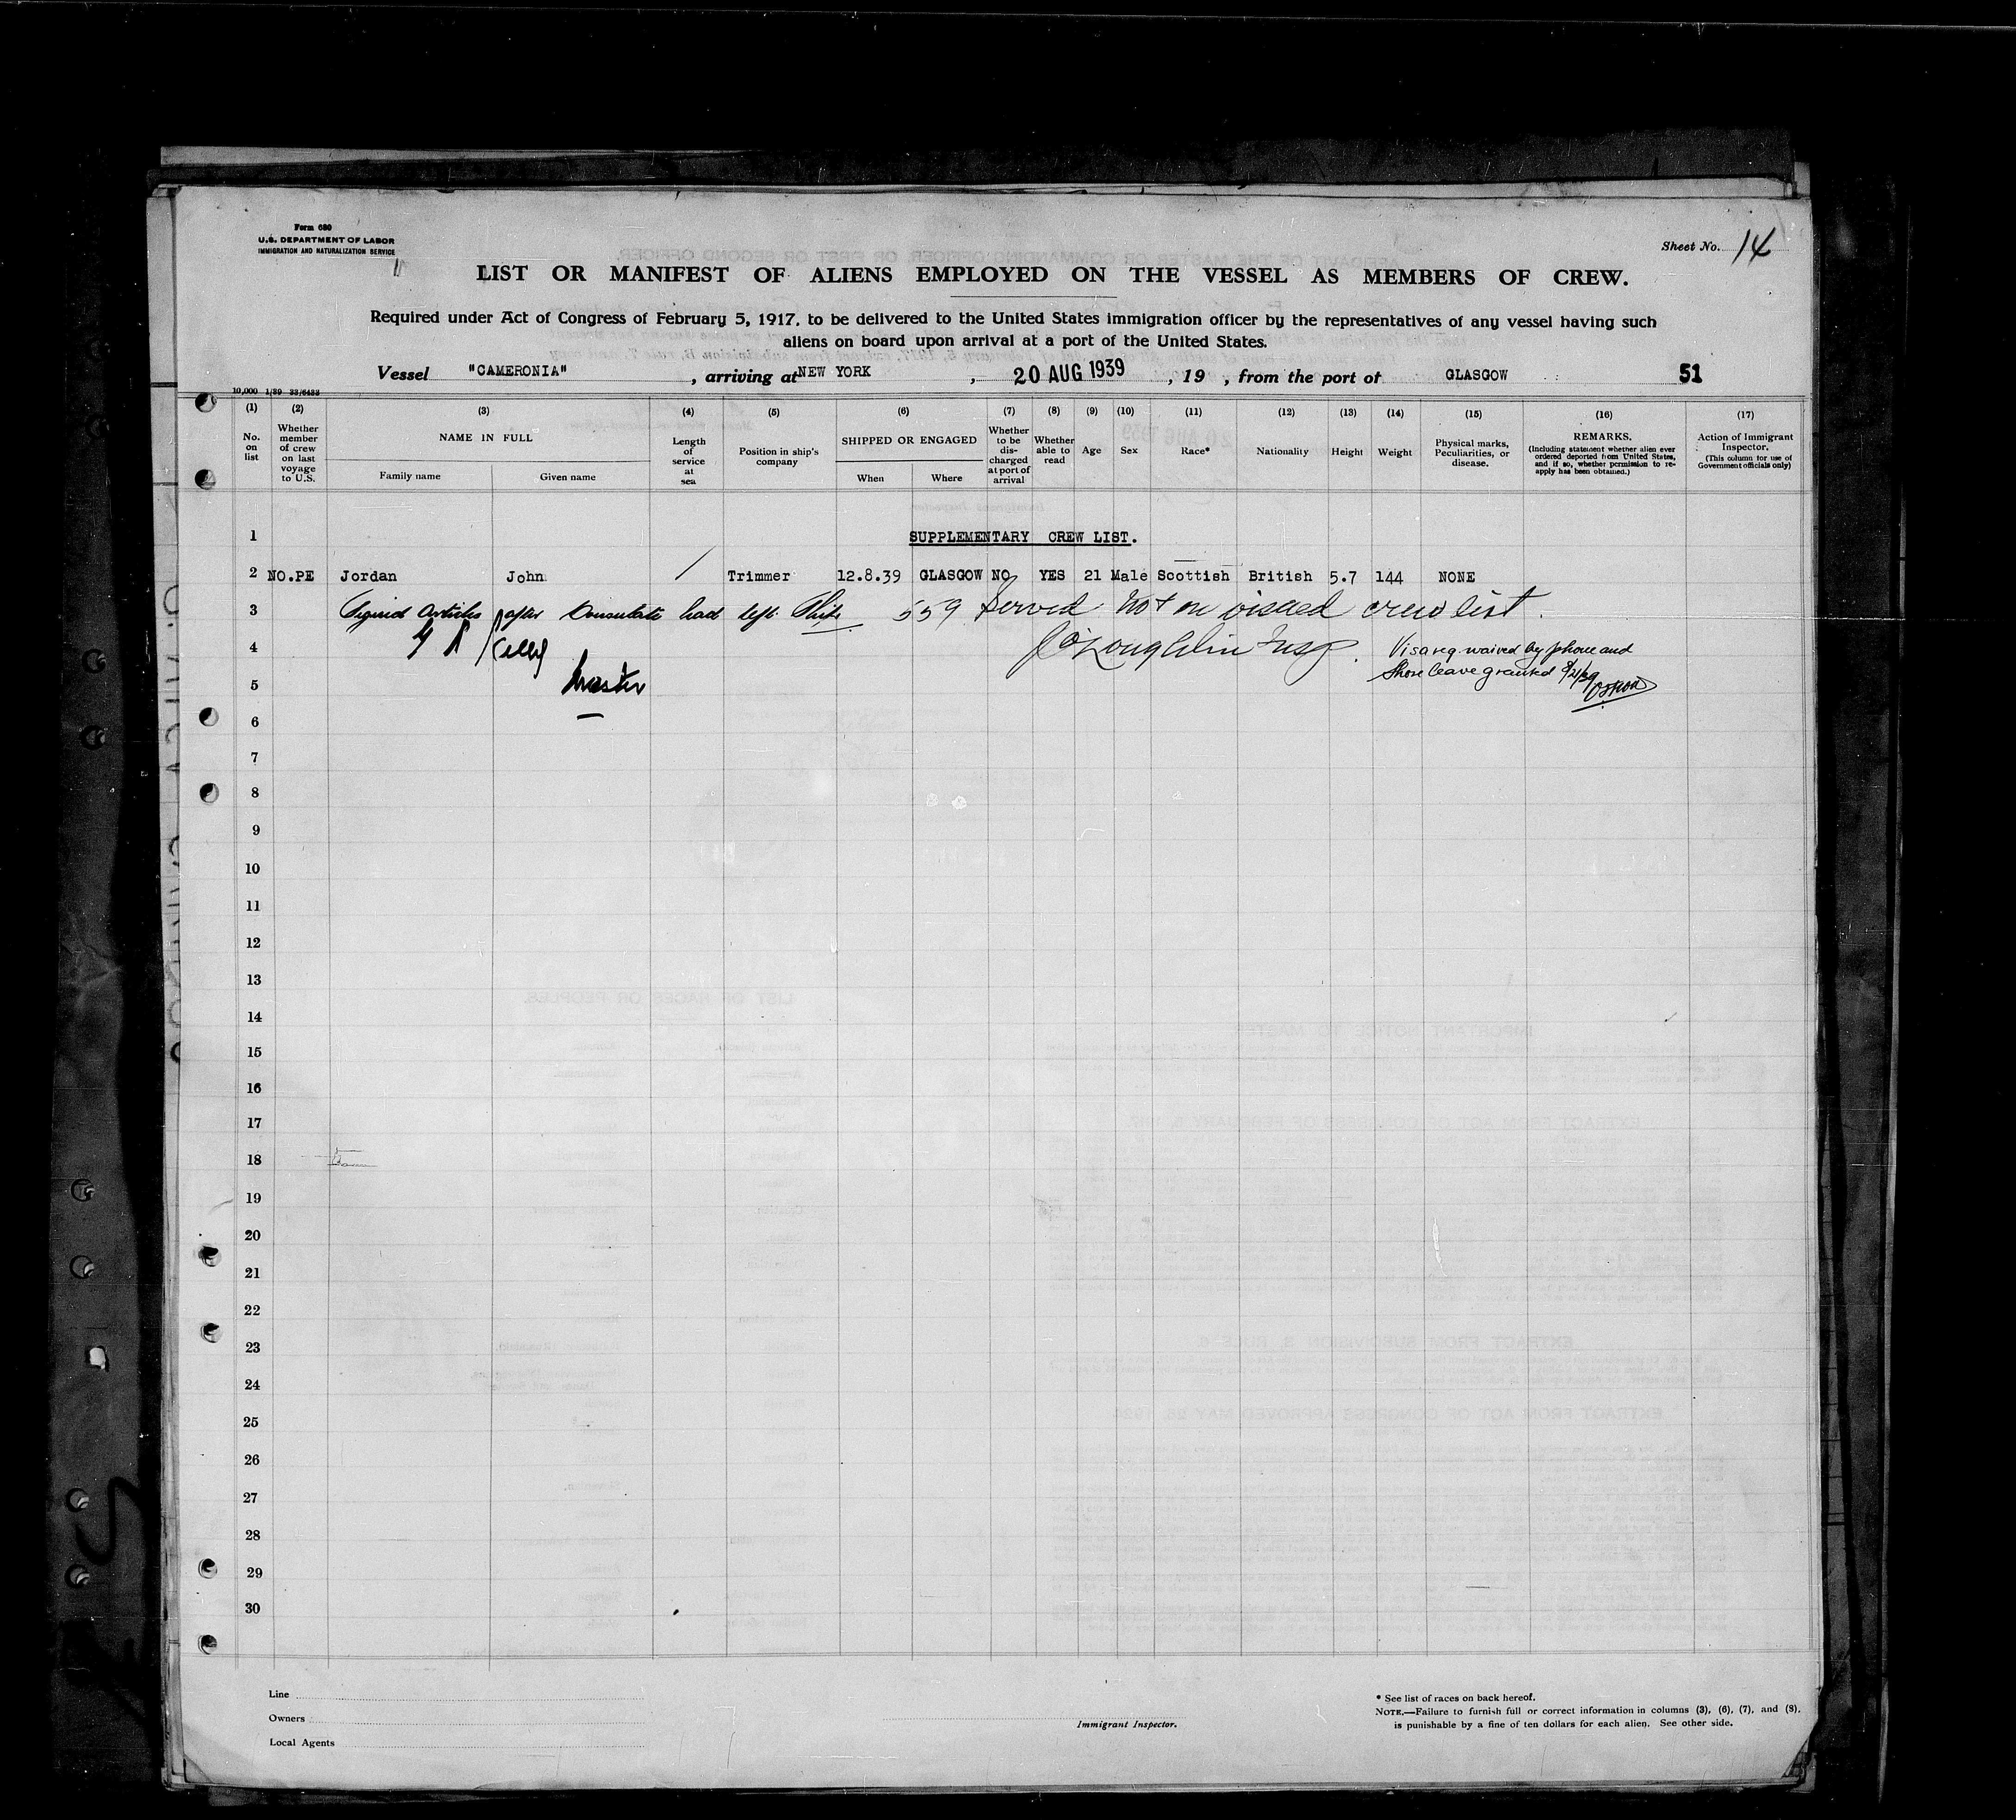 Form 680
U.S. DEPARTMENT OF LABOR
IMMIGRATION AND NATURALIZATION SERVICE
Sheet No. 14
LIST OR MANIFEST OF ALIENS EMPLOYED ON THE VESSEL AS MEMBERS OF CREW.
Required under Act of Congress of February 5, 1917, to be delivered to the United States immigration officer by the representatives of any vessel having such
aliens on board upon arrival at a port of the United States.
Vessel "CAMERONIA", arriving at NEW YORK, 20 AUG 1939, 19 , from the port of GLASGOW 51
10,000 1/39
(1) (2) (3) (4) (5) (6) (7) (8) (9) (10) (11) (12) (13) (14) (15) (16) (17)
No. on list
Whether member of crew on last voyage to U.S.
NAME IN FULL
Family name
Given name
Length of service at sea
Position in ship's company
SHIPPED OR ENGAGED
When
Where
Whether to be dis-charged at port of arrival
Whether able to read
Age
Sex
Race*
Nationality
Height
Weight
Physical marks, Peculiarities, or disease.
REMARKS.
(Including statement whether alien ever ordered deported from United States, and if so, whether permission to re-apply has been obtained.)
Action of Immigrant Inspector.
(This column for use of Government officials only)
1 SUPPLEMENTARY CREW LIST.
2 NO.PE Jordan John / Trimmer 12.8.39 GLASGOW NO YES 21 Male Scottish British 5.7 144 NONE
3 Signed Articles after Consulate had left Ship. 559 Served not on visaed crew list.
4 Kelly J O'Loughlin Insp. Visa req. waived by phone and
5 Master Shore leave granted 8/21/39
6
7
8
9
10
11
12
13
14
15
16
17
18
19
20
21
22
23
24
25
26
27
28
29
30
Line
Owners
Local Agents
Immigrant Inspector.
* See list of races on back hereof.
NOTE.—Failure to furnish full or correct information in columns (3), (6), (7), and (8),
is punishable by a fine of ten dollars for each alien. See other side.